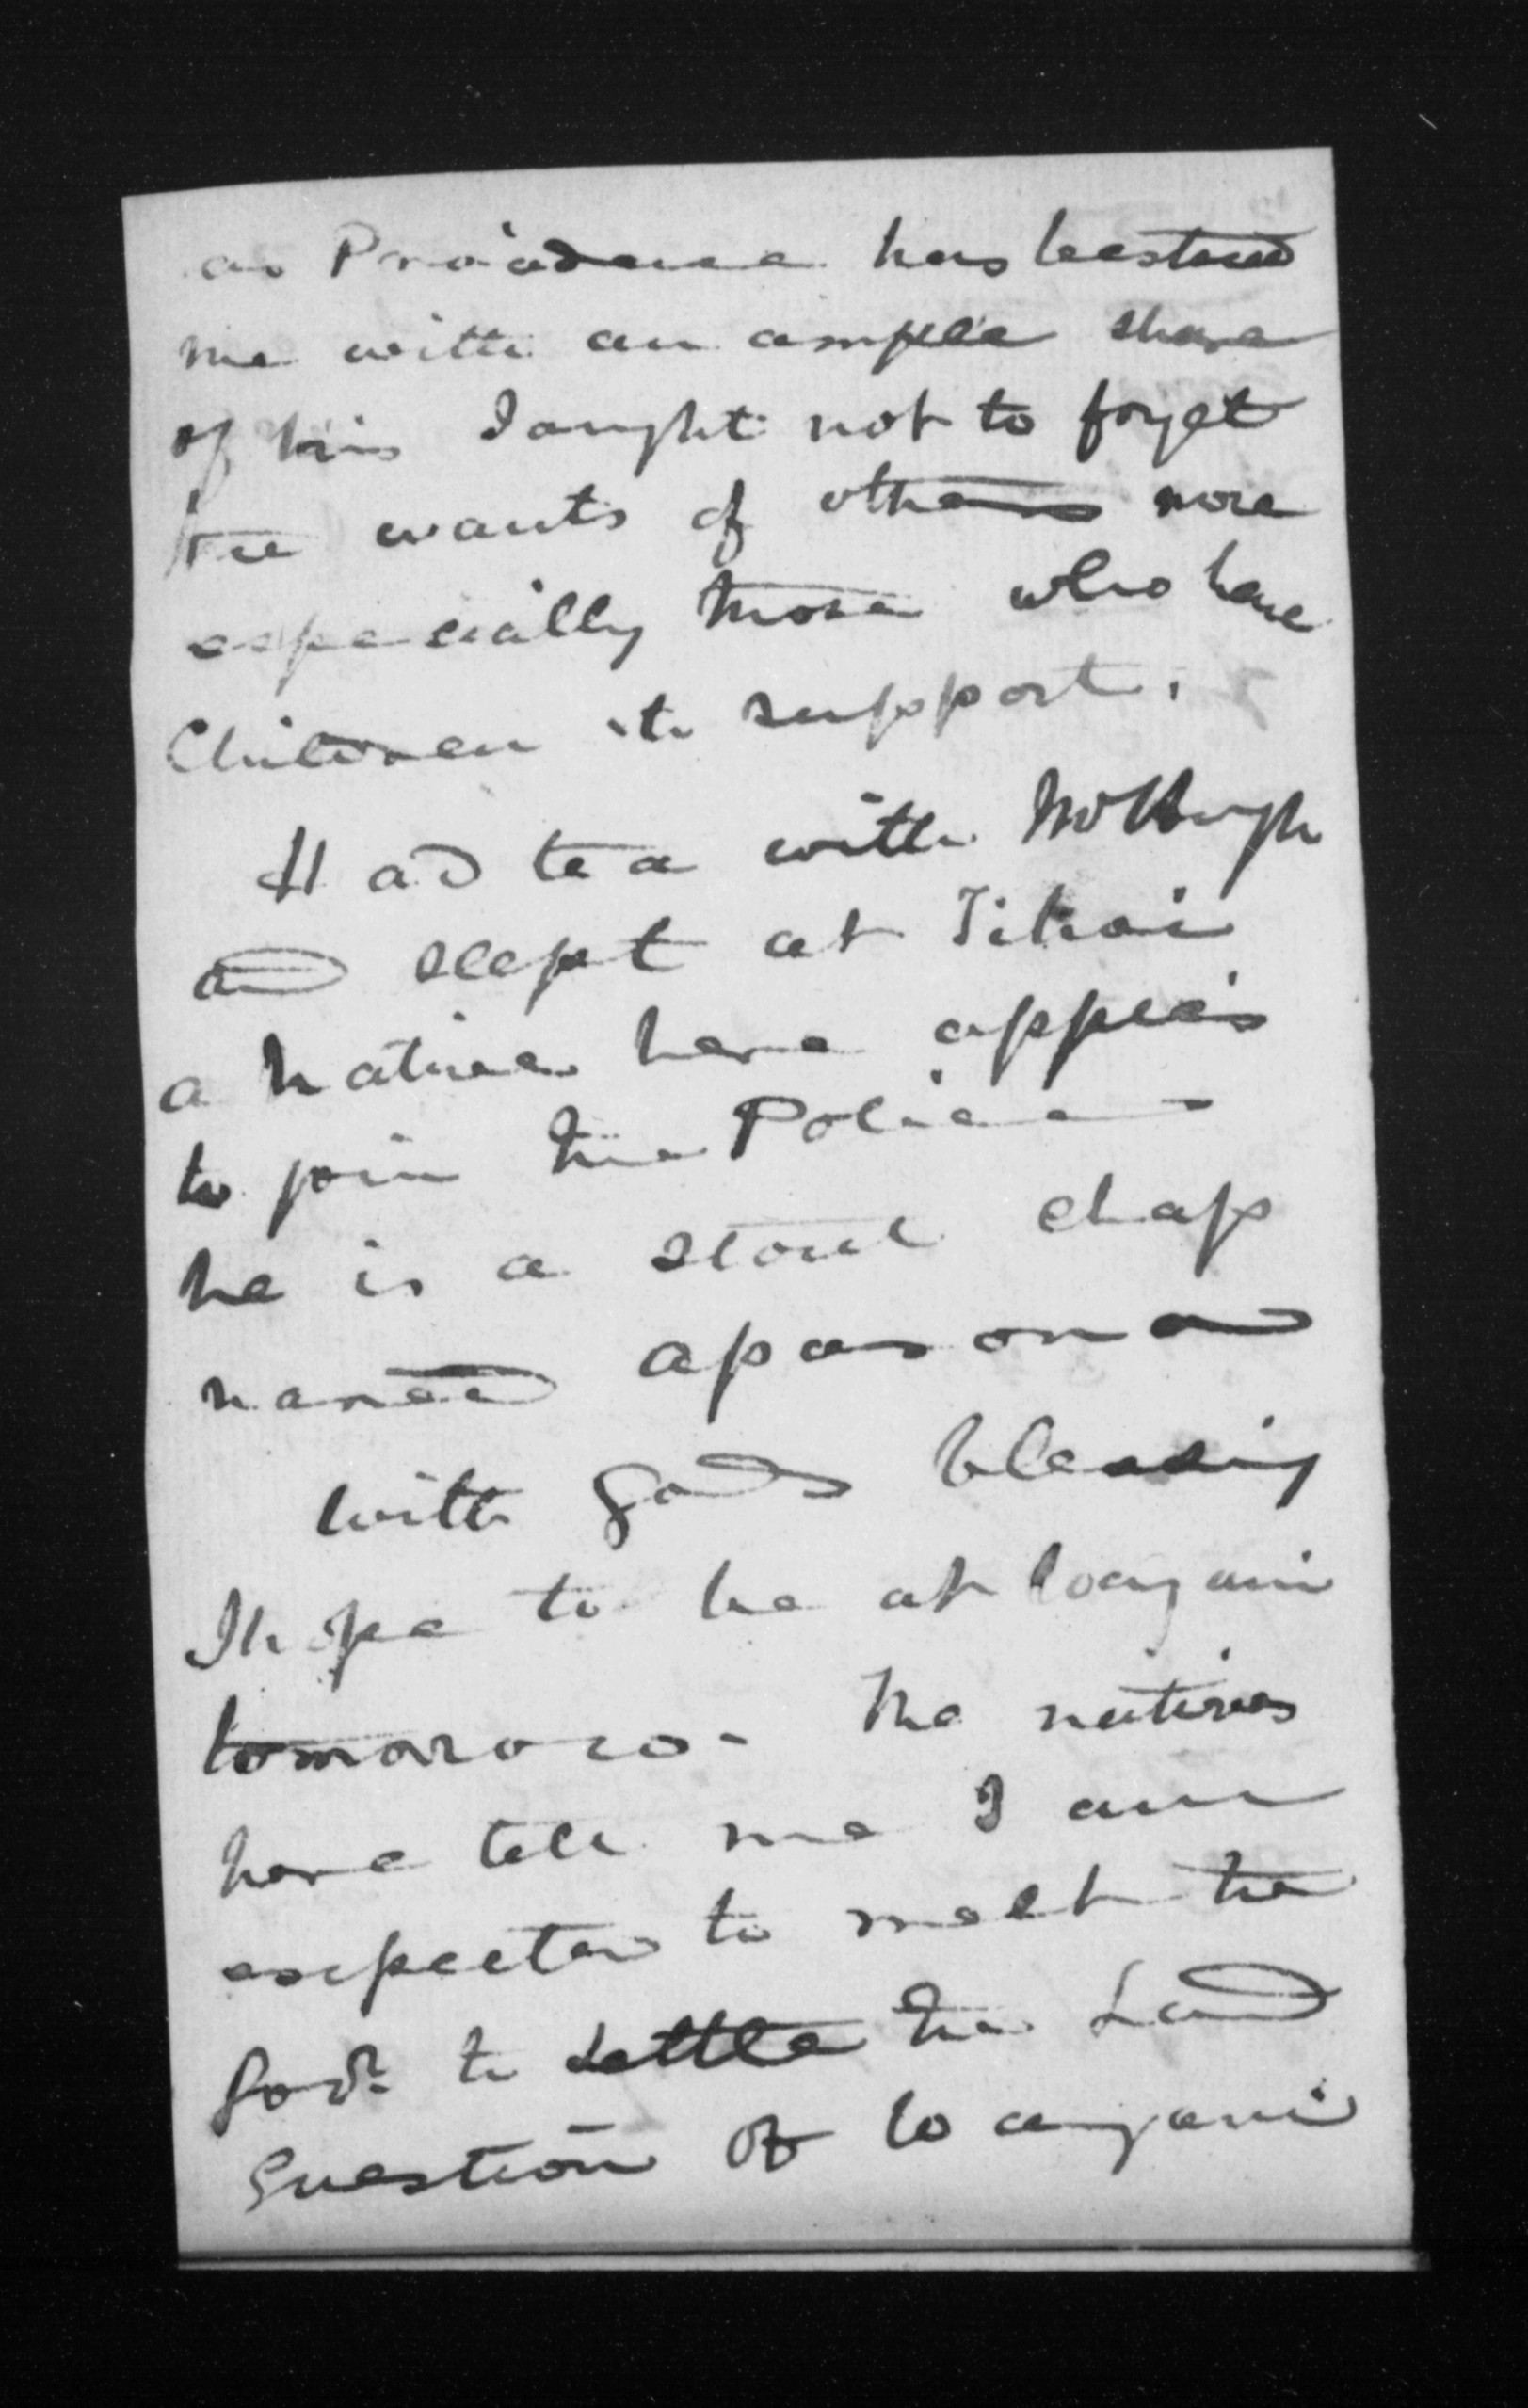 as Providence has bestowed
me with an ample share
of his I aught not to forget
the wants of others more
especially those who have
Children to support.
Had tea with
and slept at Titirai
a native here applies
to join the Police
he is a stout chap
named aparona
with gods blessing
I hope to be at
tomorrow - The natives
here tell me I am
expected to meet the
Govr. to settle the Land
Question of